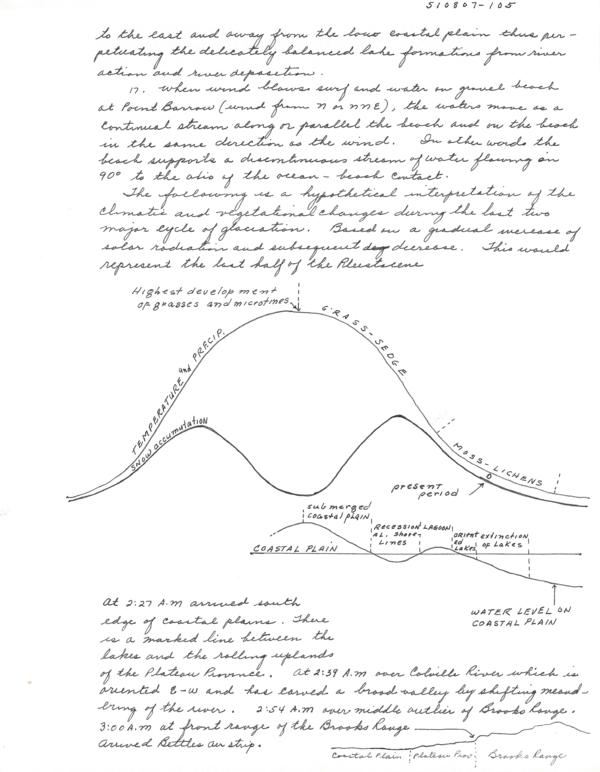 510807-105
to the east and away from the low coastal plain thus per-
petuating the delicately balanced lake formations from river
action and river deposition.
17. When wind blows surf and water on gravel beach
at Point Barrow (wind from N or NNE), the waters move as a
continual stream along or parallel the beach and on the beach
in the same direction as the wind. In other words the
beach supports a discontinuous stream of water flowing on
90° to the axis of the ocean - beach contact.
The following is a hypothetical interpretation of the
climatic and vegetational changes during the last two
major cycle of glaciation. Based on a gradual increase of
solar radiation and subsequent decrease. This would
represent the last half of the Pleistocene
Highest development
of grasses and microtines
GRASS-SEDGE
TEMPERATURE and PRECIP.
SNOW accumulation
MOSS-LICHENS
present
period
submerged
coastal plain
RECESSION
AL. Shore
LINES
LAGOON
ORIENT
ED
Lakes
extinction
of Lakes
COASTAL PLAIN
WATER LEVEL ON
COASTAL PLAIN
At 2:27 A.M arrived south
edge of coastal plains. There
is a marked line between the
lakes and the rolling uplands
of the Plateau Province. At 2:39 A.M over Colville River which is
oriented E-W and has carved a broad valley by shifting meand-
ering of the river. 2:54 A.M over middle outlier of Brooks Range.
3:00 A.M at front range of the Brooks Range
Arrived Bettles air strip.
Coastal Plain Plateau Prov. Brooks Range